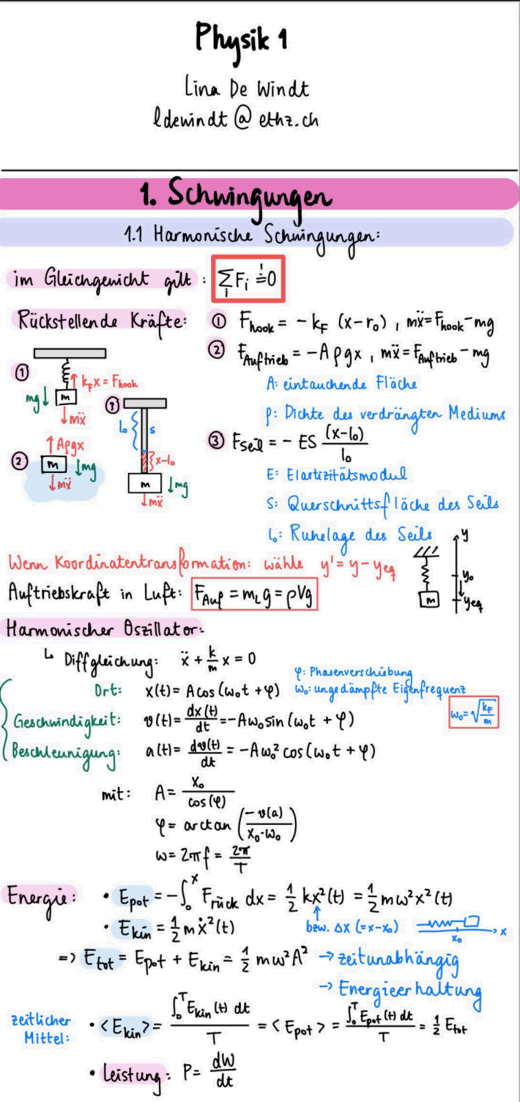 Physik 1
Lina De Windt
ldewindt @ ethz.ch
1. Schwingungen
1.1 Harmonische Schwingungen:
im Gleichgewicht gilt : ∑ᵢ Fᵢ =! 0
Rückstellende Kräfte: ① F_hook = - k_F (x-r₀) , mẍ = F_hook - mg
② F_Auftrieb = -Aρgx , mẍ = F_Auftrieb - mg
A: eintauchende Fläche
ρ: Dichte des verdrängten Mediums
③ F_Seil = - ES (x-l₀)/l₀
E: Elastizitätsmodul
S: Querschnittsfläche des Seils
l₀: Ruhelage des Seils
①
k_F x = F_hook
mg
m
mẍ
l₀
s
x-l₀
m
mg
mẍ
②
Aρgx
m
mg
mẍ
Wenn Koordinatentransformation: wähle y' = y - y_eq
y
y₀
y_eq
m
Auftriebskraft in Luft: F_Auf = m_L g = ρVg
Harmonischer Oszillator:
↳ Diffgleichung: ẍ + k/m x = 0
φ: Phasenverschübung
ω₀: ungedämpfte Eigenfrequenz
ω₀ = √(k_F/m)
Ort: x(t) = A cos(ω₀t + φ)
Geschwindigkeit: v(t) = dx(t)/dt = -Aω₀ sin(ω₀t + φ)
Beschleunigung: a(t) = dv(t)/dt = -Aω₀² cos(ω₀t + φ)
mit: A = x₀/cos(φ)
φ = arctan (-v(a)/(x₀·ω₀))
ω = 2πf = 2π/T
Energie: • E_pot = -∫₀ˣ F_rück dx = 1/2 kx²(t) = 1/2 mω²x²(t)
• E_kin = 1/2 mẋ²(t)
bzw. Δx (=x-x₀)
x₀
x
=> E_tot = E_pot + E_kin = 1/2 mω²A² → zeitunabhängig
→ Energieerhaltung
zeitlicher Mittel: • <E_kin> = ∫₀ᵀ E_kin(t) dt / T = <E_pot> = ∫₀ᵀ E_pot(t) dt / T = 1/2 E_tot
• Leistung: P = dW/dt